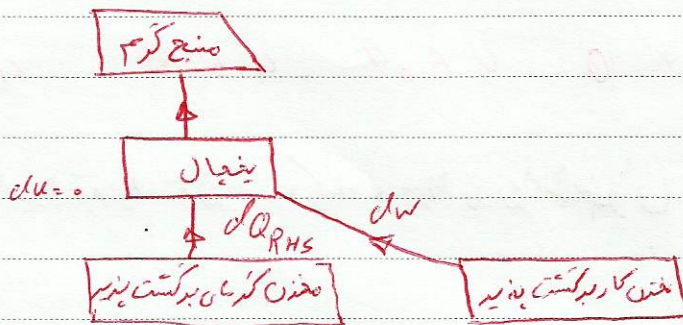 منبع گرم
یخچال
du=0
dQ_RHS
dw
مخزن گرمای برگشت پذیر
مخزن کار برگشت پذیر